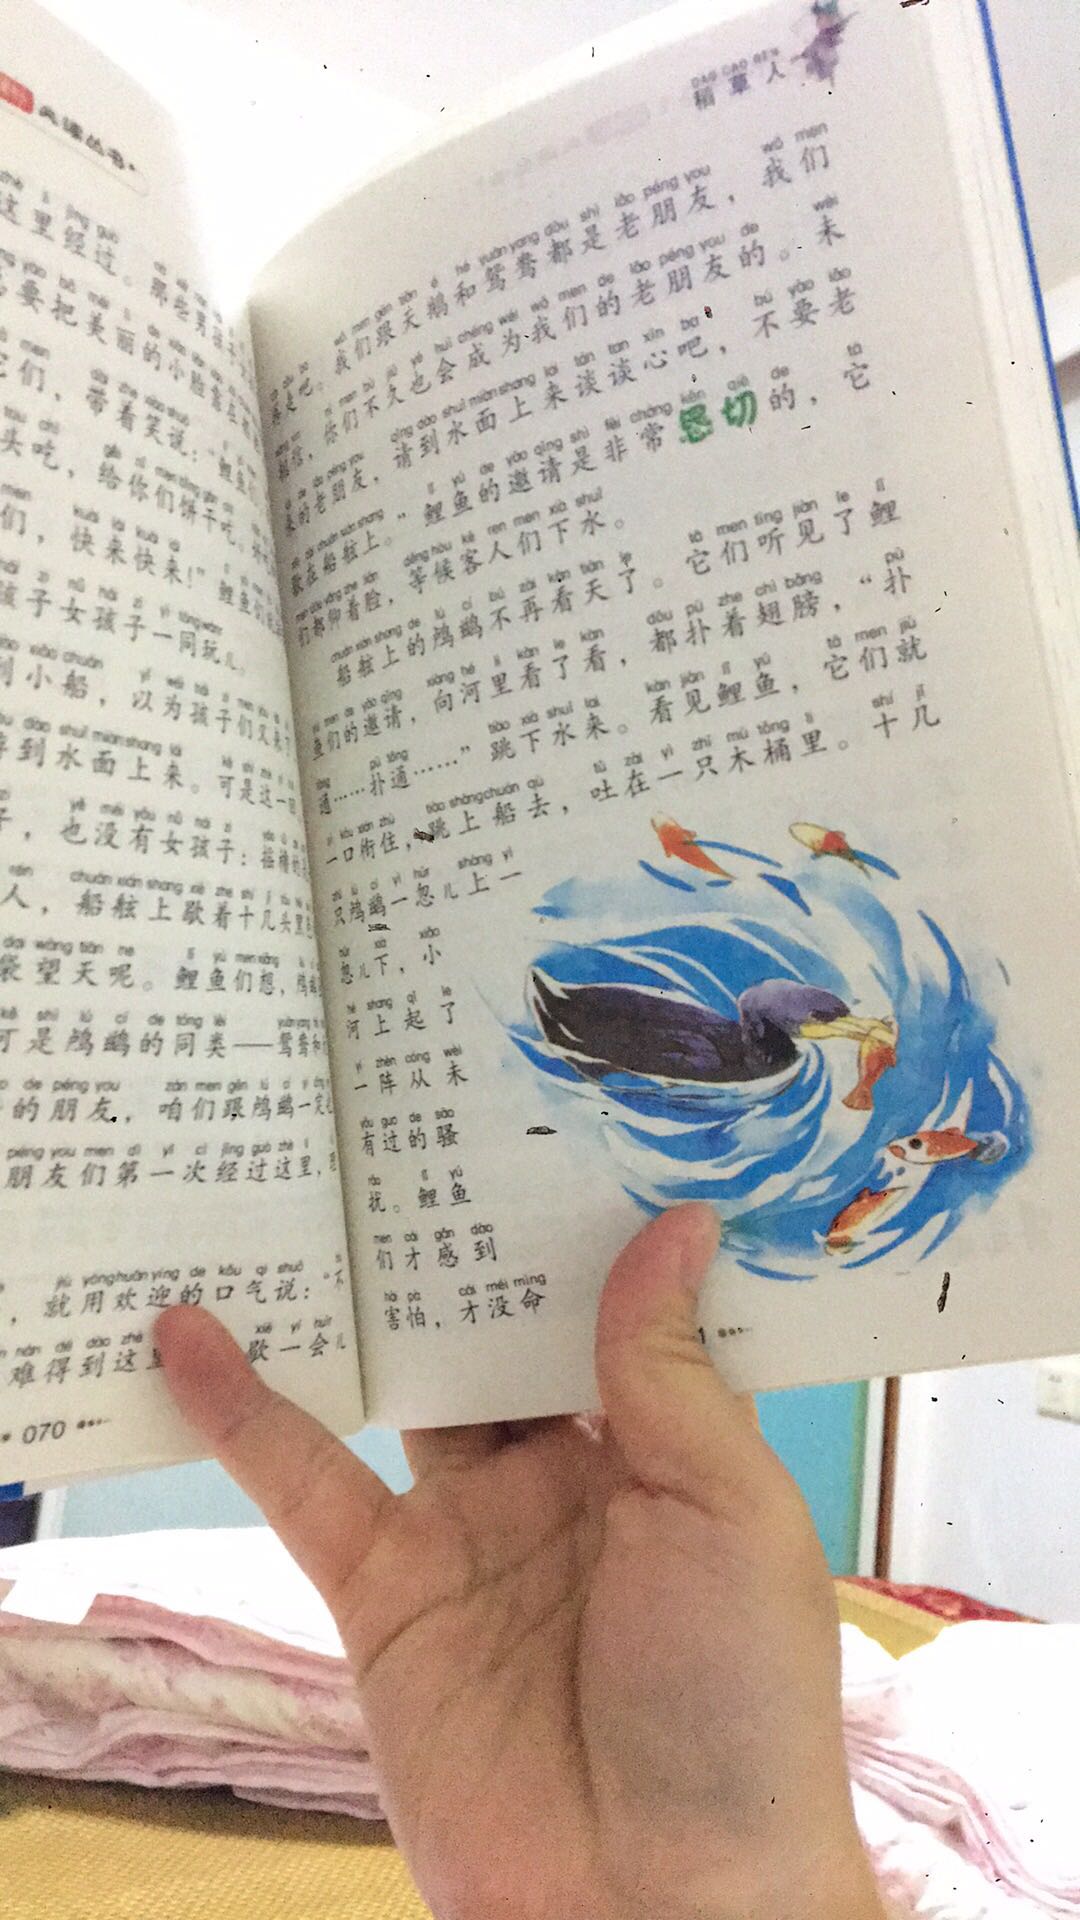 必读丛书
这里经过。那些男孩子
要把美丽的小脸靠在
它们，带着笑说：“鲤鱼
头吃，给你们饼干吃。
们，快来快来！”鲤鱼们
孩子女孩子一同玩儿。
到小船，以为孩子们又来了
浮到水面上来。可是这一回
子，也没有女孩子；摇橹的
人，船舷上歇着十几头黑色
袋望天呢。鲤鱼们想，鸬鹚
可是鸬鹚的同类——鸳鸯和
的朋友，咱们跟鸬鹚一定
朋友们第一次经过这里，
，就用欢迎的口气说：“不
难得到这里 歇一会儿
070
DAO CAO REN
稻草人
吧。我们跟天鹅和鸳鸯都是老朋友，我们
相信，你们不久也会成为我们的老朋友的。未
来的老朋友，请到水面上来谈谈心吧，不要老
歇在船舷上。”鲤鱼的邀请是非常恳切的，它
们都仰着脸，等候客人们下水。
船舷上的鸬鹚不再看天了。它们听见了鲤
鱼们的邀请，向河里看了看，都扑着翅膀，“扑
通……扑通……”跳下水来。看见鲤鱼，它们就
一口衔住，跳上船去，吐在一只木桶里。十几
只鸬鹚一忽儿上一
忽儿下，小
河上起了
一阵从未
有过的骚
扰。鲤鱼
们才感到
害怕，才没命